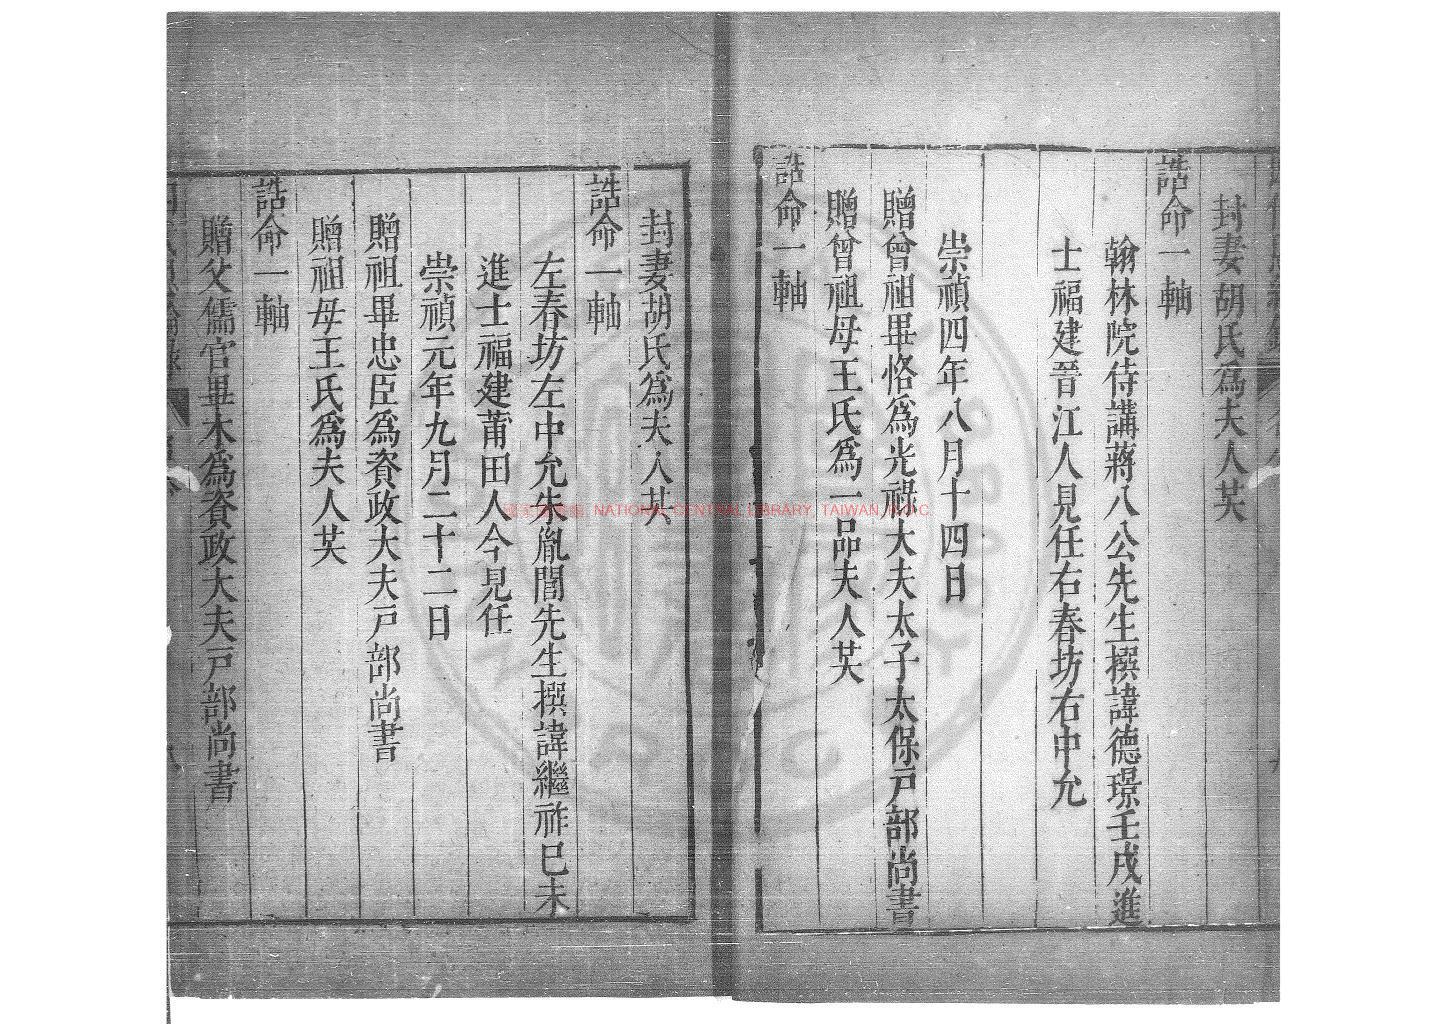 封妻胡氏爲夫人共
誥命一軸
翰林院侍講蔣八公先生撰諱德璟壬戌進
士福建晉江人見任右春坊右中允
崇禎四年八月十四日
贈曾祖畢恪爲光祿大夫太子太保戶部尚書
贈曾祖母王氏爲一品夫人共
誥命一軸
封妻胡氏爲夫人共
誥命一軸
左春坊左中允朱胤閶先生撰諱繼祚巳未
進士福建莆田人今見任
崇禎元年九月二十二日
贈祖畢忠臣爲資政大夫戶部尚書
贈祖母王氏爲夫人共
誥命一軸
贈父儒官畢木爲資政大夫戶部尚書
國家圖書館 NATIONAL CENTRAL LIBRARY, TAIWAN, R.O.C